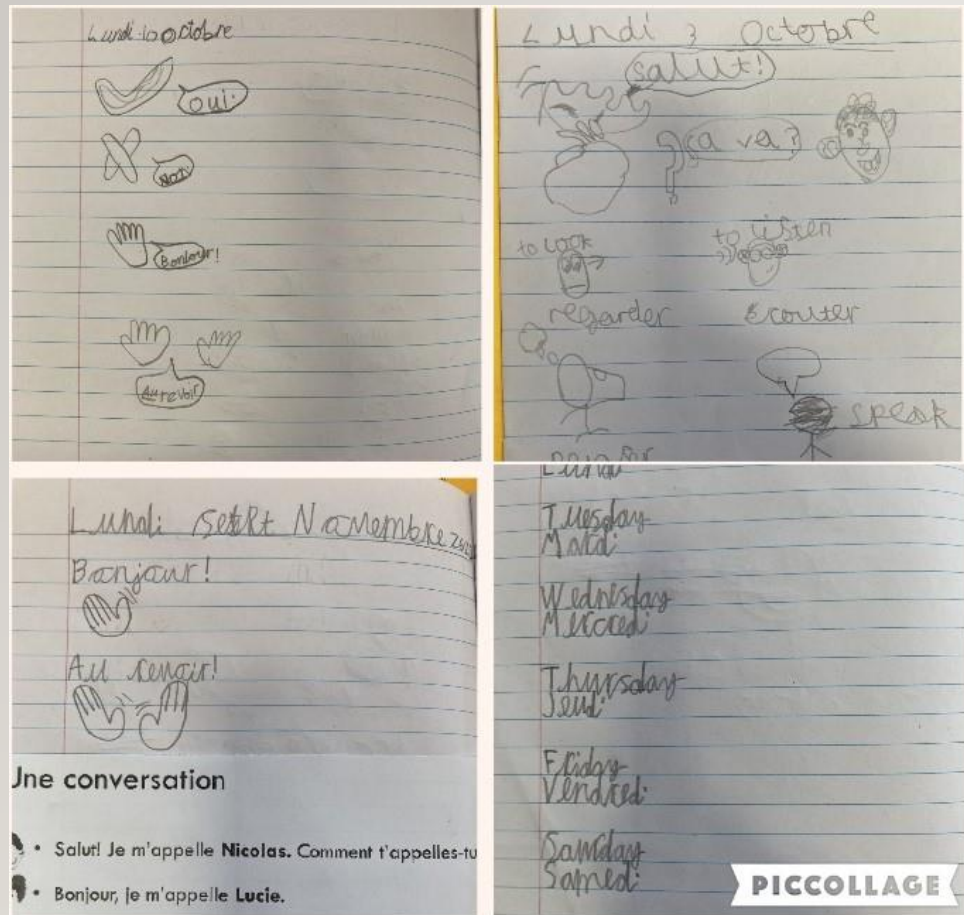 Lundi 10 Octobre
oui.
Non
Bonjour!
Au revoir
Lundi 3 Octobre
salut!
sa va?
to look
to listen
regarder
Écouter
speak
Lundi sept Novembre
Bonjour!
Au revoir!
Une conversation
• Salut! Je m'appelle Nicolas. Comment t'appelles-tu
• Bonjour, je m'appelle Lucie.
Lundi
Tuesday
Mardi
Wednesday
Mercredi
Thursday
Jeudi
Friday
Vendredi
Samedi
PICCOLLAGE